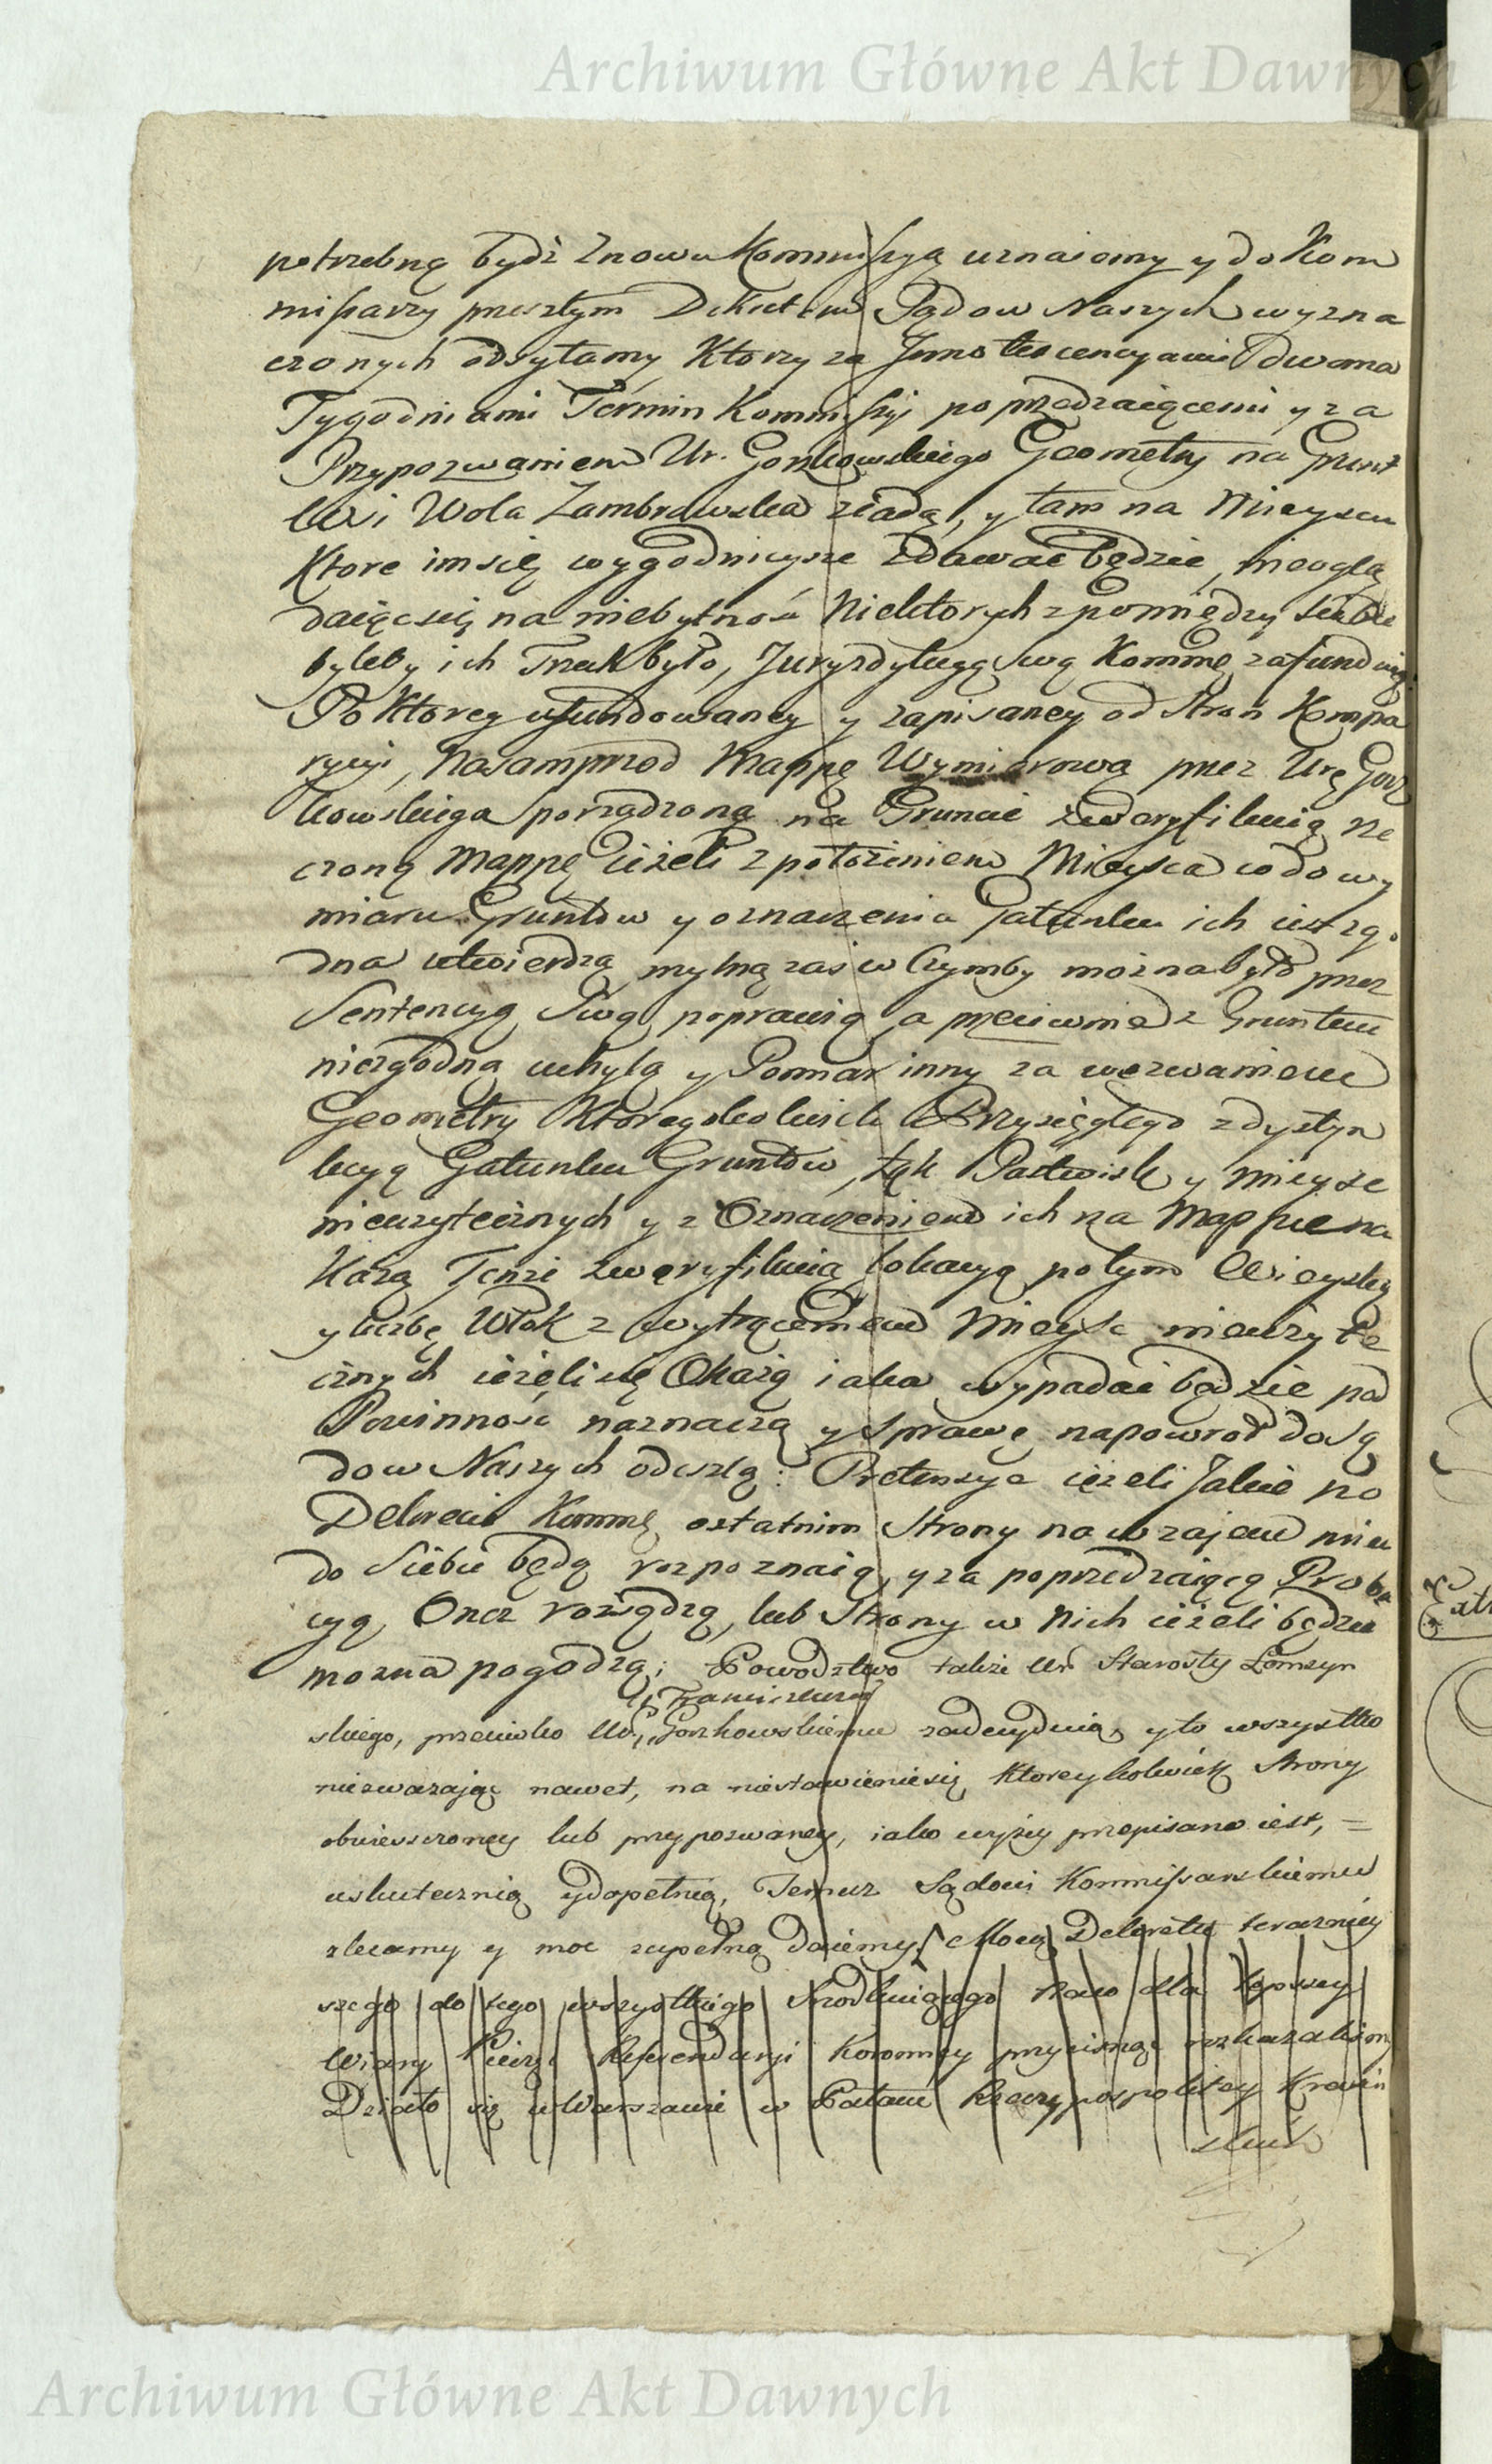 Archiwum Główne Akt Dawnych
potrzebną bydź znowu Kommissyą uznaiomy y do Kom
missarzy przeszłym Dekretem Sądow Naszych wyzna
czonych odsyłamy Ktorzy za Jnnotescencyami dwoma
Tygodniami Termin Kommissyi poprzedzaiącemi y za
Przypozwaniem Ur. Gorzkowskiego Geometry na Grunt
Wsi Wola Zambrowska ziadą, y tam na Mieyscu
Ktore im się wygodnieysze zdawać będzie, nieoglą
daiąc się na niebytność Niektorych z pomiędzy siebie
byleby ich Trzech było, Juryzdykcyą swą Kommę zafunduią
Po Ktorey ufundowaney y zapisaney od Stron Kompa
rycyi, Nasamprzod Mappę Wymiarową przez Urę Gorz
kowskiego sporządzoną na Gruncie zweryfikuią rze
czoną Mappę ieżeli z położeniem Mieysca co do wy
miaru Gruntow y oznaczenia Gatunku ich iest zgo
dna utwierdzą mylną zaś w Czymby można było przez
Sentencyą Swą poprawią, a przeciwnie z Gruntem
niezgodną uchylą y Pomiar inny za wezwaniem
Geometry Ktoregokolwiek Przysięgłego z dystyn
kcyą Gatunku Gruntow, Łąk Pastwisk y Mieysc
nieużytecznych y z Oznaczeniem ich na Mappie na
Każą Tenże zweryfikuią lokacyą potym Wieyską
y liczbę Włok z wytrąceniem Mieysc nieużyte
cznych ieżeli się Okażą iaka wypadać będzie pod
Powinność naznaczą y sprawę napowrot do Są
dow Naszych odeszlą: Pretensye ieżeli Jakie po
Dekrecie Kommę ostatnim Strony nawzajem mieć
do Siebie będą rozpoznaią, y za poprzedzaiącą Proba
cyą Onez rozsądzą, lub Strony w Nich ieżeli będzie
można pogodzą; Powodztwo także Ur Starosty Łomżyn
Franciszkowi
skiego, przeciwko Ur Gorzkowskiemu zadecyduią, y to wszystko
niezważaiąc nawet, na niestawienie się Ktoreykolwiek Strony
obwieszczoney lub przypozwaney, iako wyżey przepisano iest, =
uskutecznią y dopełnią, Temuż Sądowi Kommissarskiemu
zlecamy y moc zupełną daiemy. Mocą Dekretu teraznieyszego
szego do tego wszystkiego srodkuiącego Na co dla lepszey
Wiary Pieczęć Referendaryi Koronney przycisnąć rozkazaliśmy
Działo się w Warszawie w Pałacu Rzeczypospolitey Krasin
skich
Archiwum Główne Akt Dawnych